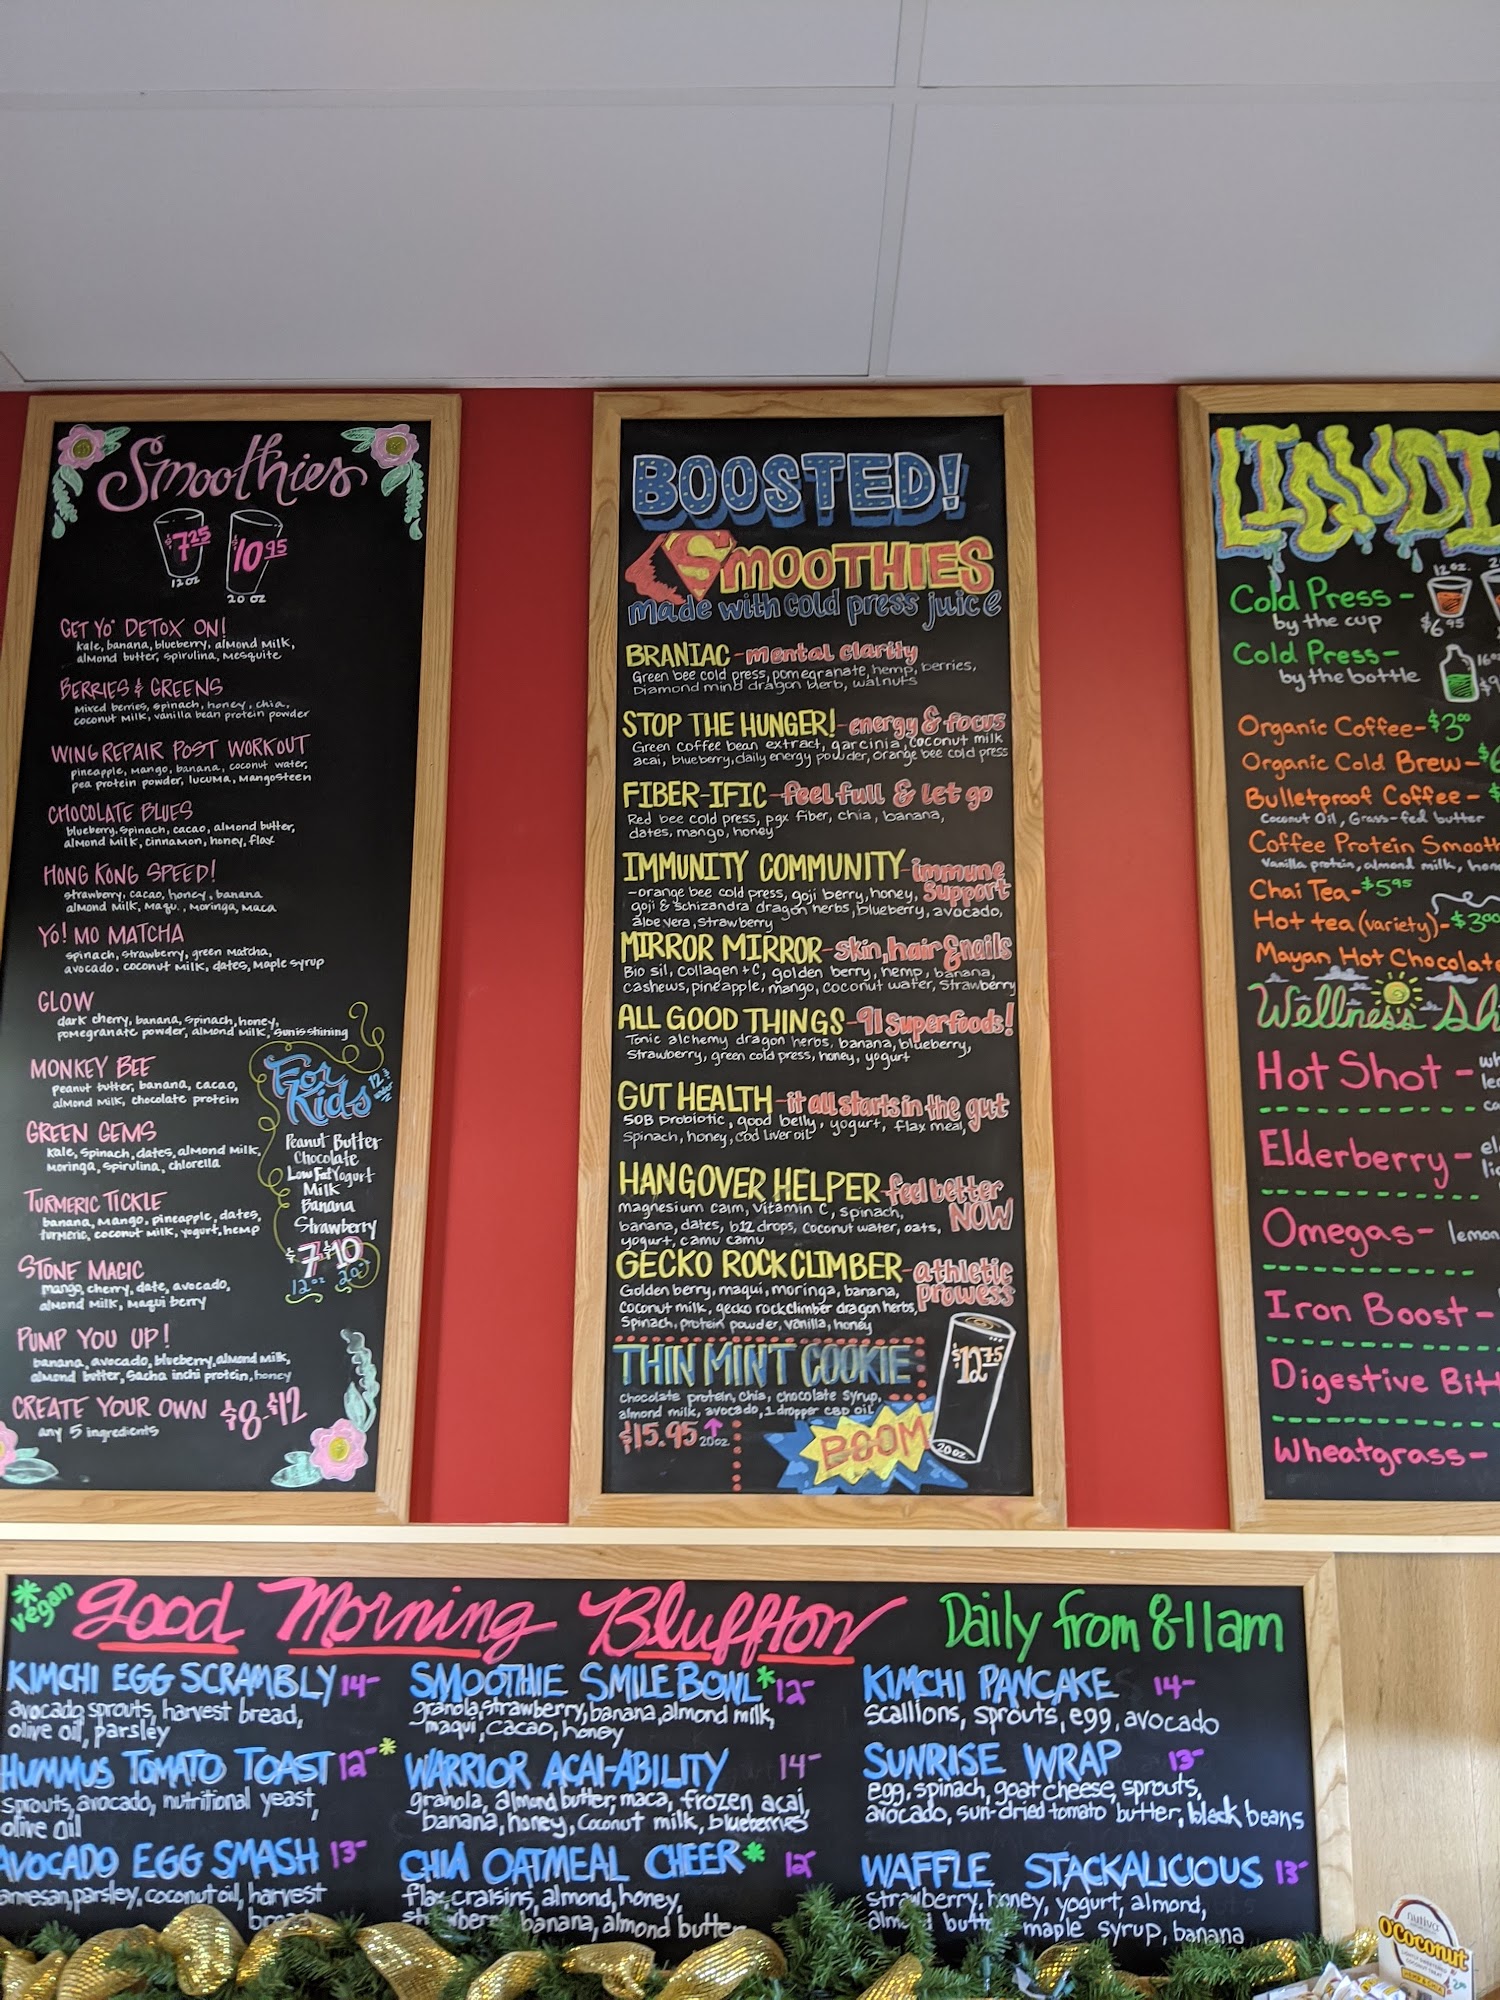 Smoothies
$7.25 $10.95
12 oz 20 oz
GET YO' DETOX ON!
kale, banana, blueberry, almond milk,
almond butter, spirulina, mesquite
BERRIES & GREENS
Mixed berries, spinach, honey, chia,
coconut milk, vanilla bean protein powder
WING REPAIR POST WORKOUT
pineapple, mango, banana, coconut water,
pea protein powder, lucuma, mangosteen
CHOCOLATE BLUES
blueberry, spinach, cacao, almond butter,
almond milk, cinnamon, honey, flax
HONG KONG SPEED!
strawberry, cacao, honey, banana
almond milk, maqu., moringa, maca
YO! MO MATCHA
spinach, strawberry, green matcha,
avocado, coconut milk, dates, maple syrup
GLOW
dark cherry, banana, spinach, honey,
pomegranate powder, almond milk, sun is shining
MONKEY BEE
peanut butter, banana, cacao,
almond milk, chocolate protein
GREEN GEMS
kale, spinach, dates, almond milk,
moringa, spirulina, chlorella
TURMERIC TICKLE
banana, mango, pineapple, dates,
turmeric, coconut milk, yogurt, hemp
STONE MAGIC
mango, cherry, date, avocado,
almond milk, maqui berry
PUMP YOU UP!
banana, avocado, blueberry, almond milk,
almond butter, sacha inchi protein, honey
CREATE YOUR OWN $8-$12
any 5 ingredients
For
Kids
12 &
under
Peanut Butter
Chocolate
Low Fat Yogurt
Milk
Banana
Strawberry
$7 $10
12oz 20oz
BOOSTED!
SMOOTHIES
made with cold press juice
BRANIAC - mental clarity
Green bee cold press, pomegranate, hemp, berries,
Diamond mind dragon herb, walnuts
STOP THE HUNGER! - energy & focus
Green coffee bean extract, garcinia, coconut milk
acai, blueberry, daily energy powder, orange bee cold press
FIBER-IFIC - feel full & let go
Red bee cold press, pgx fiber, chia, banana,
dates, mango, honey
IMMUNITY COMMUNITY - immune
support
- orange bee cold press, goji berry, honey,
goji & schizandra dragon herbs, blueberry, avocado,
aloe vera, strawberry
MIRROR MIRROR - skin, hair & nails
Bio sil, collagen + C, golden berry, hemp, banana,
cashews, pineapple, mango, coconut water, strawberry
ALL GOOD THINGS - 91 superfoods!
Tonic alchemy dragon herbs, banana, blueberry,
strawberry, green cold press, honey, yogurt
GUT HEALTH - it all starts in the gut
50B probiotic, good belly, yogurt, flax meal,
spinach, honey, cod liver oil
HANGOVER HELPER - feel better
NOW
magnesium calm, vitamin C, spinach,
banana, dates, b12 drops, coconut water, oats,
yogurt, camu camu
GECKO ROCK CLIMBER - athletic
prowess
Golden berry, maqui, moringa, banana,
coconut milk, gecko rock climber dragon herbs,
spinach, protein powder, vanilla, honey
THIN MINT COOKIE
chocolate protein, chia, chocolate syrup,
almond milk, avocado, 1 dropper CBD oil
$15.95 20oz.
BOOM
$12.75
20oz
LIQUID
12 oz.
Cold Press -
by the cup $6.95
Cold Press -
by the bottle
Organic Coffee - $3.00
Organic Cold Brew -
Bulletproof Coffee -
Coconut Oil, Grass-fed butter
Coffee Protein Smooth
Vanilla protein, almond milk, hon
Chai Tea - $5.95
Hot tea (variety) - $3.00
Mayan Hot Chocolate
Wellness Sh
Hot Shot -
Elderberry -
Omegas - lemon
Iron Boost -
Digestive Bitt
Wheatgrass -
*vegan
Good Morning Bluffton Daily from 8-11am
KIMCHI EGG SCRAMBLY 14-
avocado, sprouts, harvest bread,
olive oil, parsley
HUMMUS TOMATO TOAST 12- *
sprouts, avocado, nutritional yeast,
olive oil
AVOCADO EGG SMASH 13-
parmesan, parsley, coconut oil, harvest
bread
SMOOTHIE SMILE BOWL* 12-
granola, strawberry, banana, almond milk,
maqui, cacao, honey
WARRIOR ACAI-ABILITY 14-
granola, almond butter, maca, frozen acai,
banana, honey, coconut milk, blueberries
CHIA OATMEAL CHEER* 12
flax, craisins, almond, honey,
strawberry, banana, almond butter
KIMCHI PANCAKE 14-
scallions, sprouts, egg, avocado
SUNRISE WRAP 13-
egg, spinach, goat cheese, sprouts,
avocado, sun-dried tomato butter, black beans
WAFFLE STACKALICIOUS 13-
strawberry, honey, yogurt, almond,
almond butter, maple syrup, banana
nutiva
O'Coconut